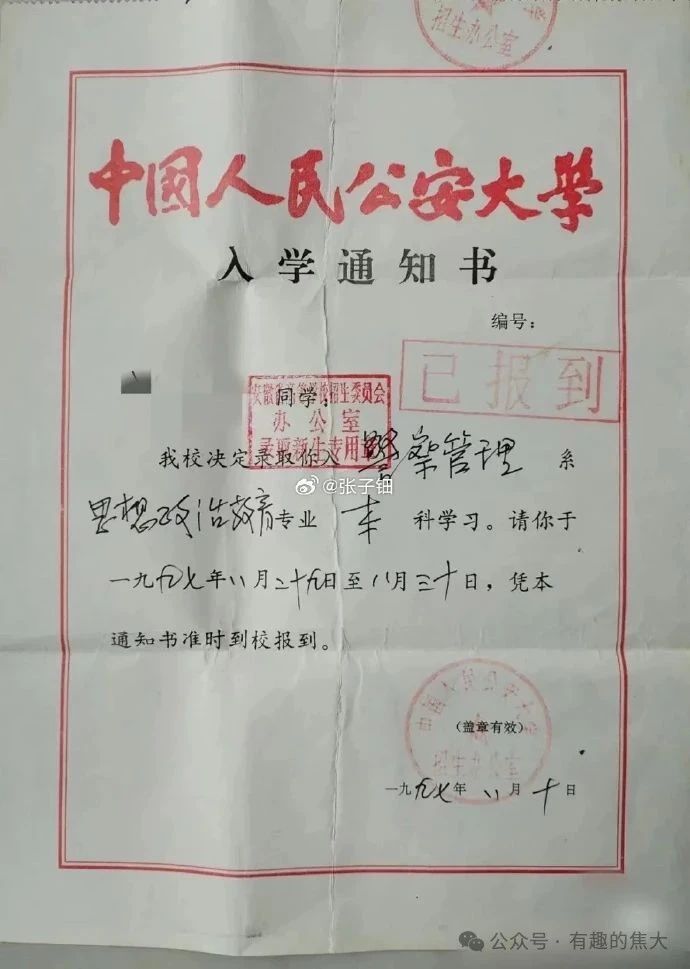 招生办公室
中国人民公安大学
入学通知书
编号：
已报到
同学：
安徽省高等学校招生委员会
办公室
录取新生专用章
我校决定录取你入警察管理系
@张子钿
思想政治教育专业本科学习。请你于
一九九七年八月二十九日至八月三十日，凭本
通知书准时到校报到。
中国人民公安大学
（盖章有效）
招生办公室
一九九七年八月十日
公众号·有趣的焦大